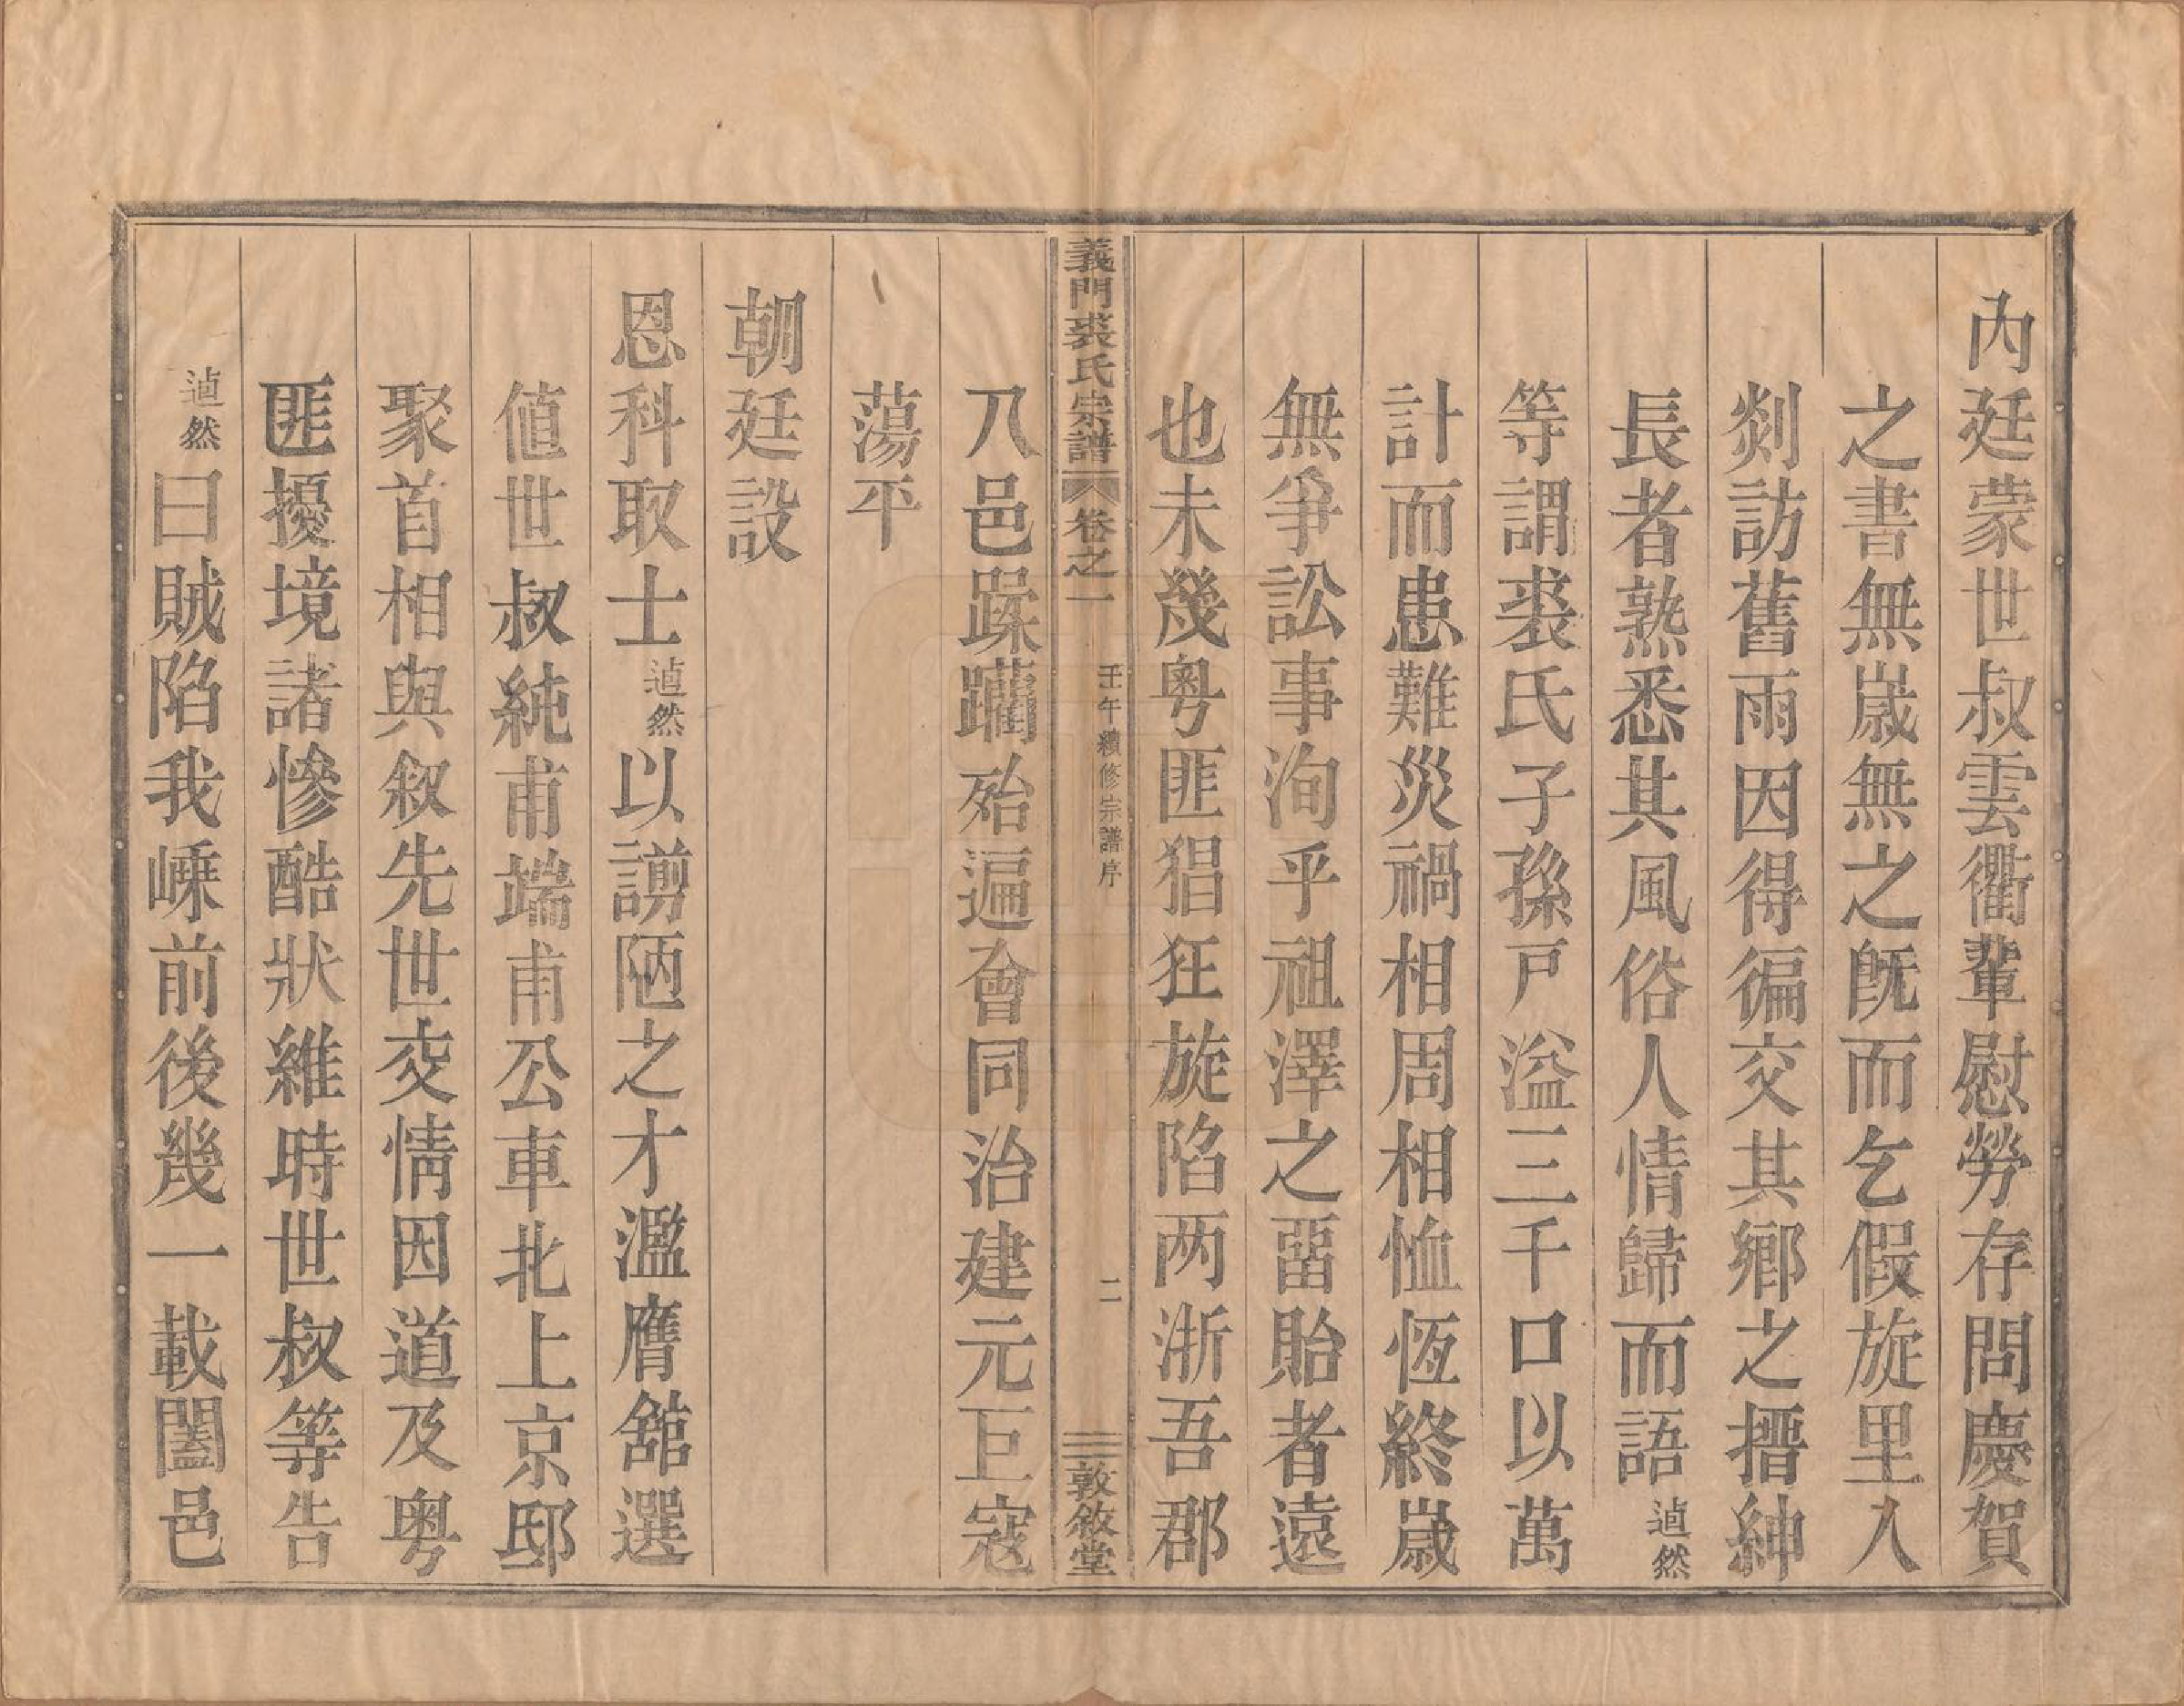 內廷蒙世叔雲衢輩慰勞存問慶賀
之書無歲無之旣而乞假旋里入
剡訪舊雨因得徧交其鄉之搢紳
長者熟悉其風俗人情歸而語逌然
等謂裘氏子孫戸溢三千口以萬
計而患難災禍相周相恤恆終歲
無爭訟事洵乎祖澤之畱貽者遠
也未幾粵匪猖狂旋陷两浙吾郡
義門裘氏宗譜 卷之一 壬午續修宗譜序 二 敦敘堂
八邑蹂躪殆遍會同治建元巨寇
蕩平
朝廷設
恩科取士逌然以謭陋之才濫膺舘選
値世叔純甫端甫公車北上京邸
聚首相與叙先世交情因道及粵
匪擾境諸慘酷狀維時世叔等告
逌然曰賊陷我嵊前後幾一載闔邑